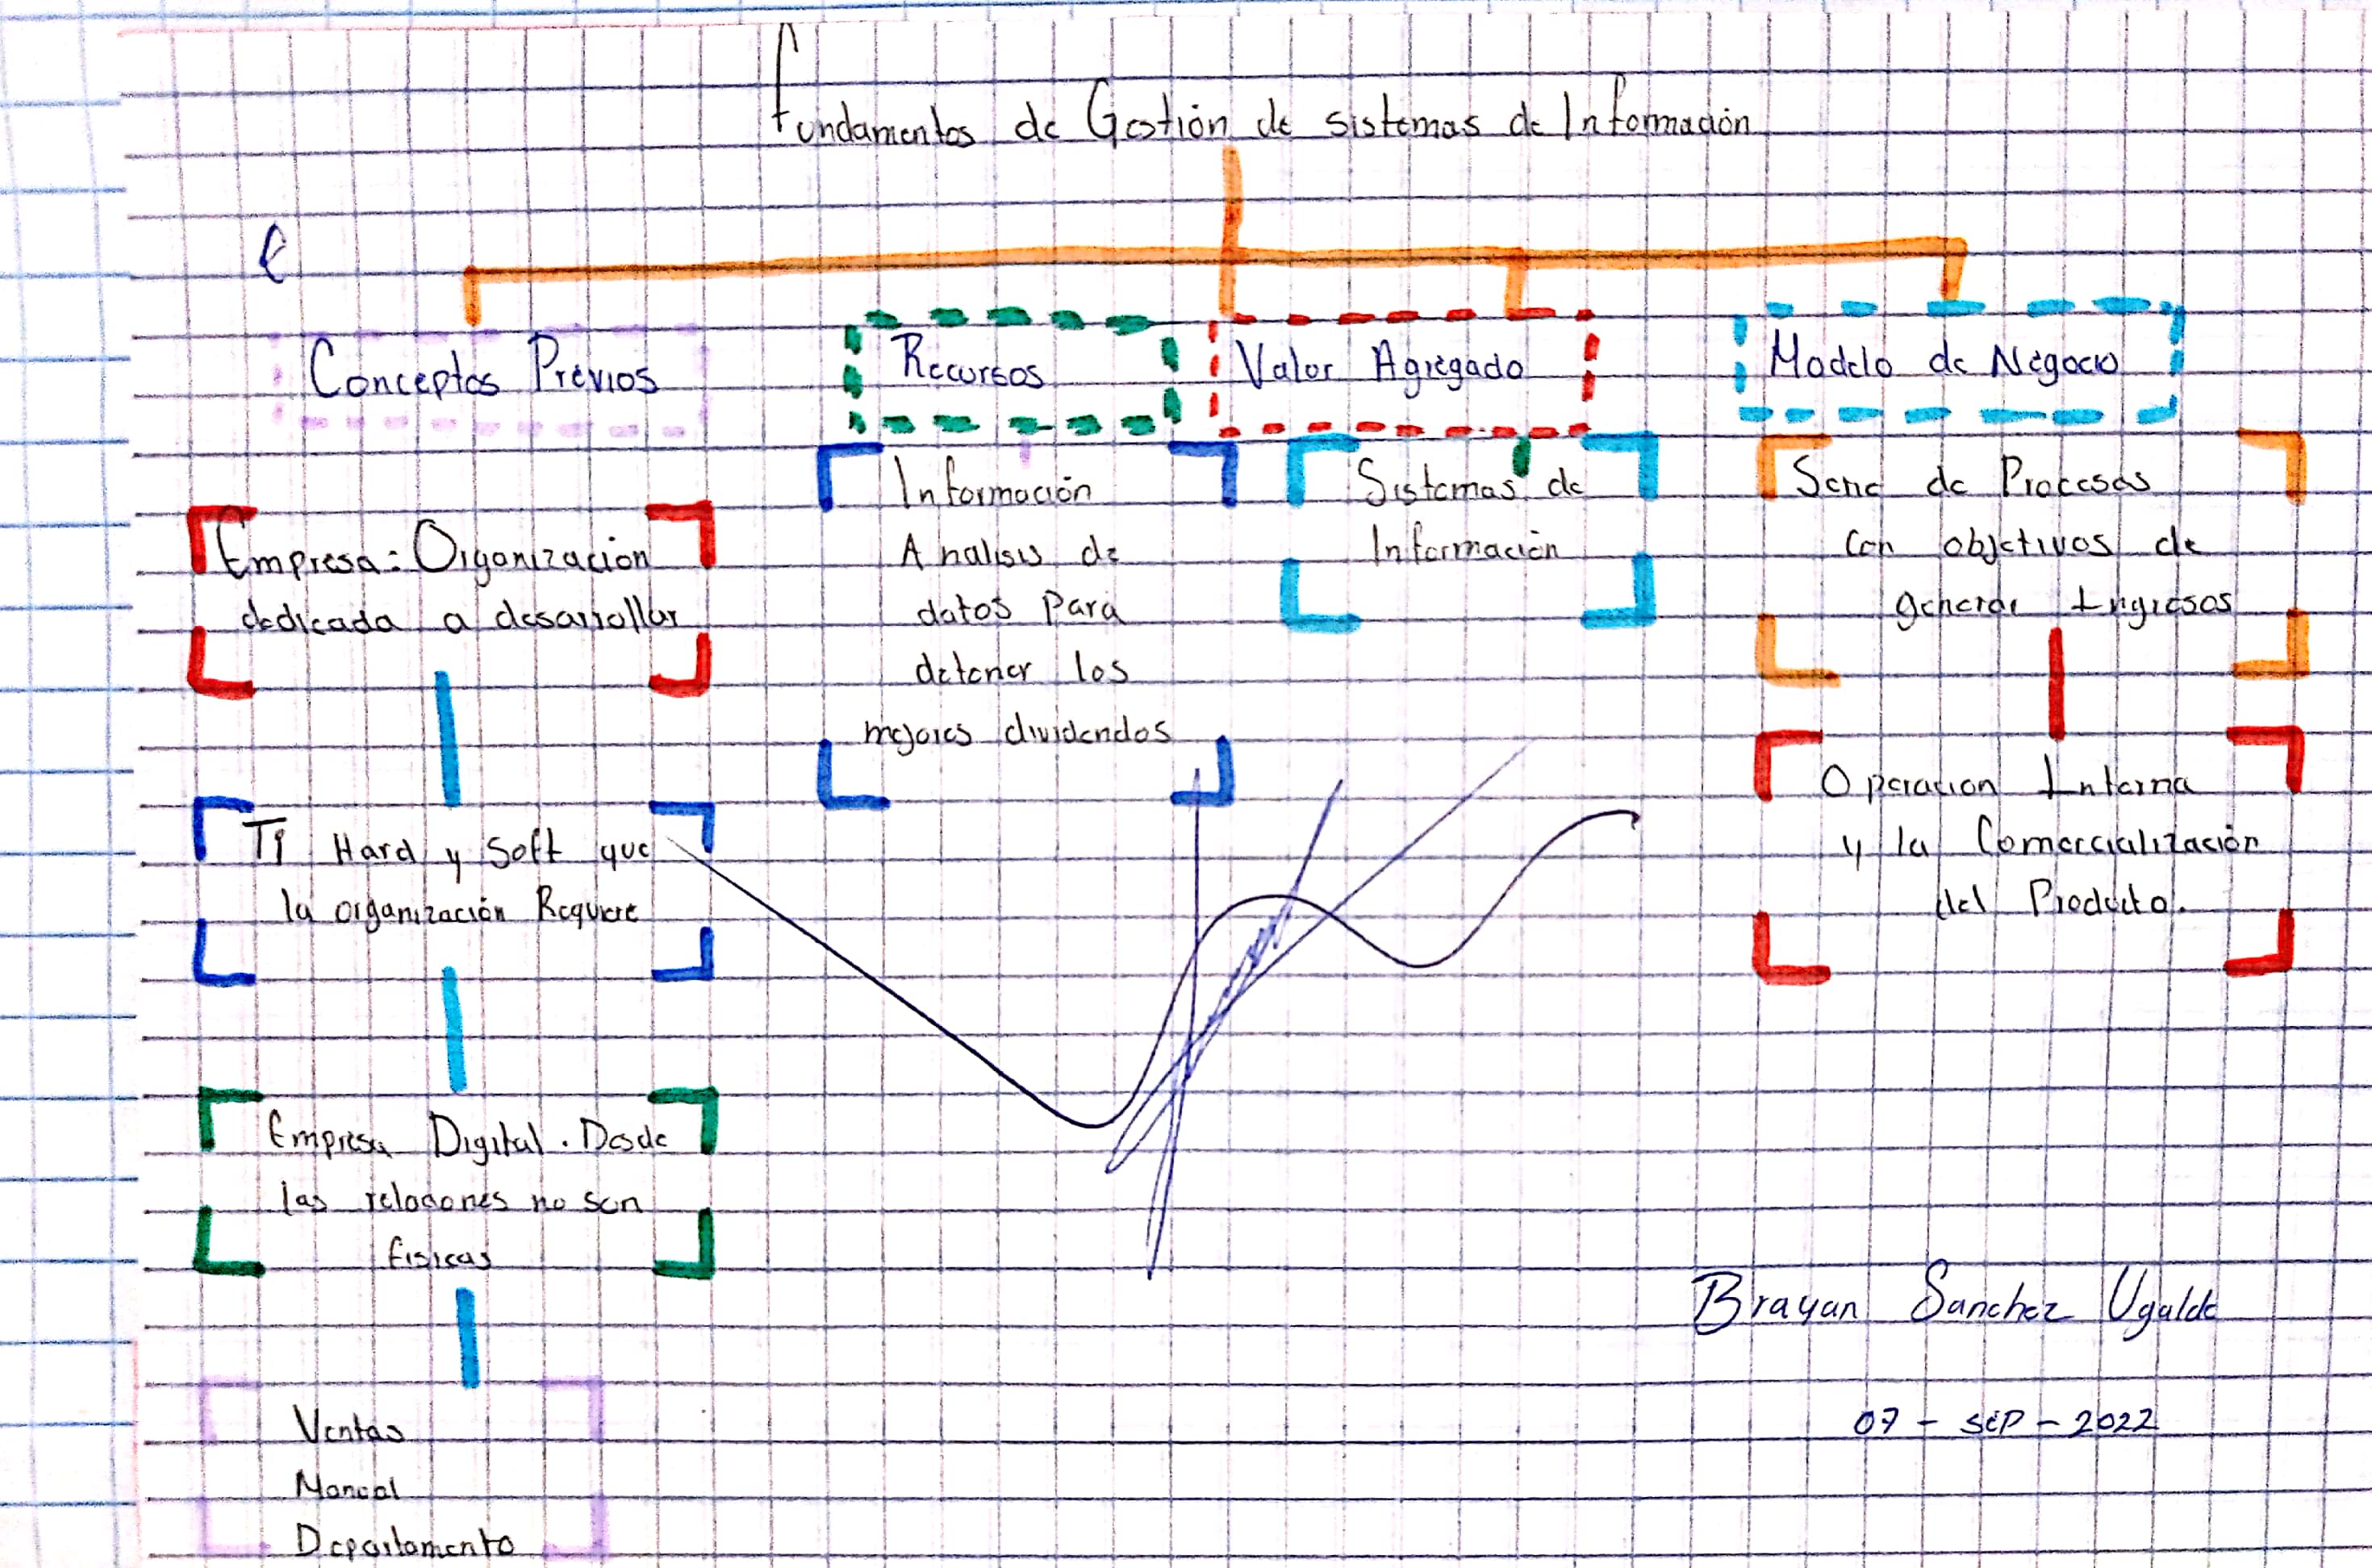 Fundamentos de Gestión de sistemas de Información
Conceptos Previos
Empresa: Organizacion
dedicada a desarrollar
Ti Hard y Soft que
la organización Requiere
Empresa Digital. Desde
las relaciones no son
fisicas
Ventas
Manual
Departamento
Recursos
Información
Analisis de
datos Para
detener los
mejores dividendos
Valor Agregado
Sistemas de
Información
Modelo de Negocio
Serie de Procesos
Con objetivos de
generar Ingresos
Operacion Interna
y la Comercialización
del Producto.
Brayan Sanchez Ugalde
07 - sep - 2022